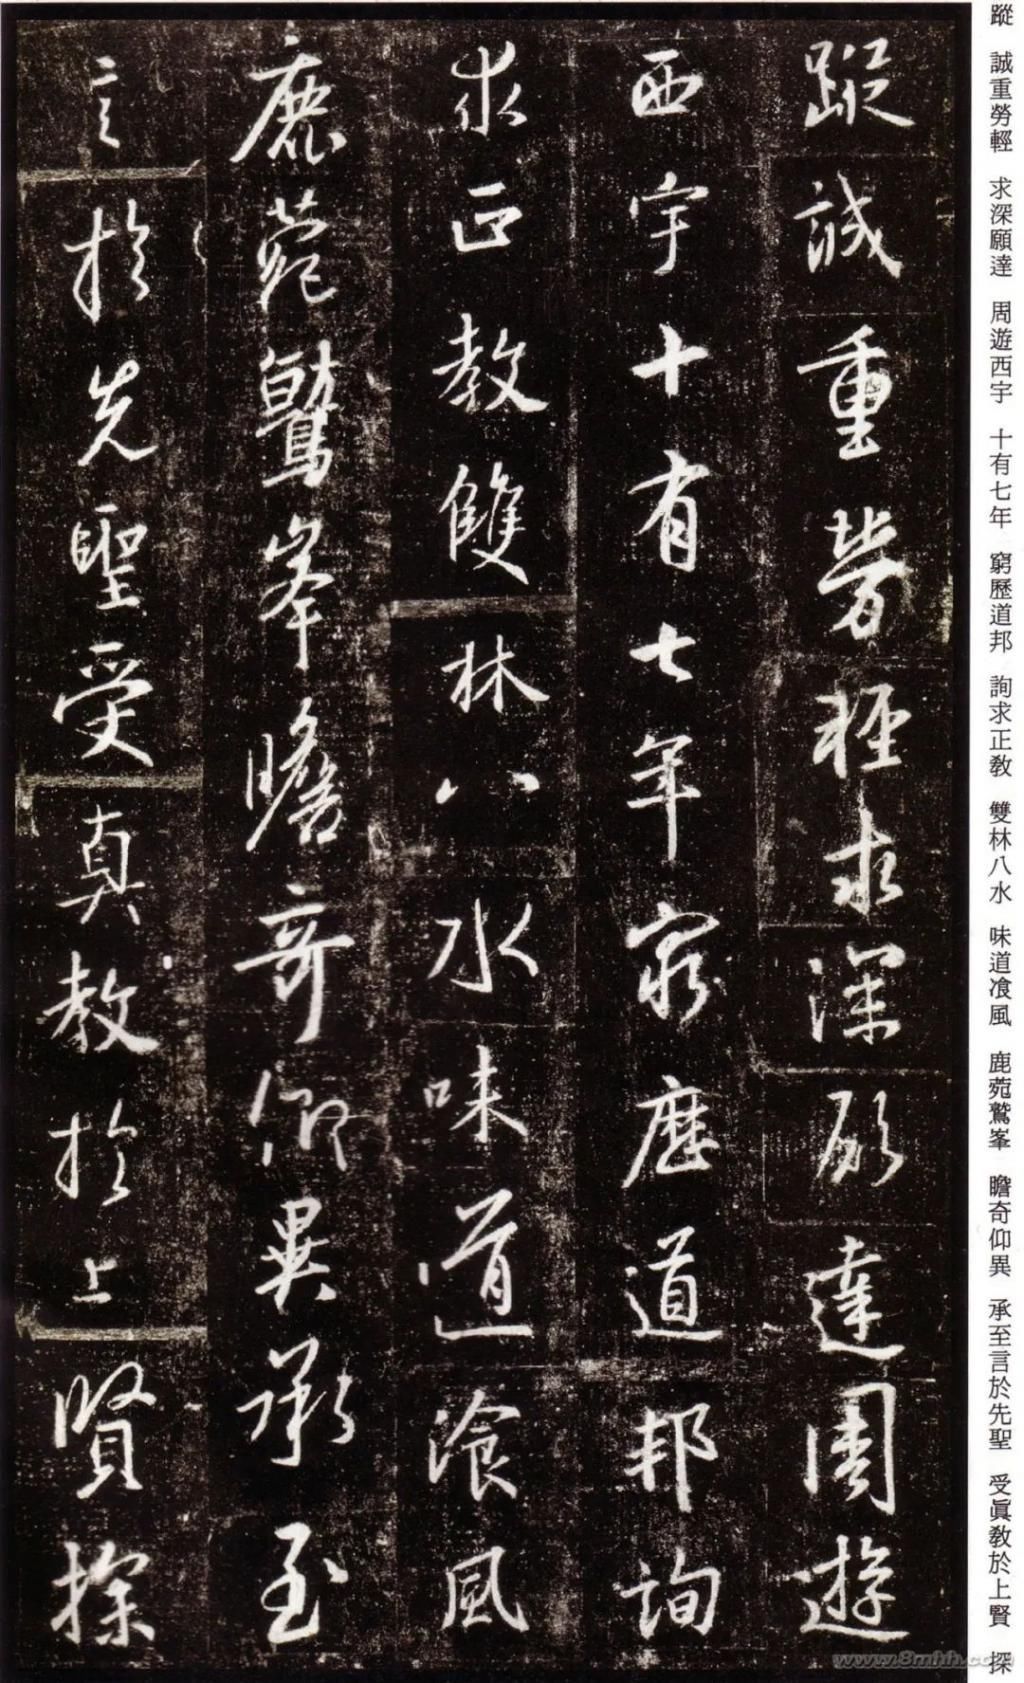 蹤誠重勞輕求深願達周遊
西宇十有七年窮歷道邦詢
求正教雙林八水味道飡風
鹿菀鷲峯瞻奇仰異承至
言於先聖受真教於上賢探
蹤 誠重勞輕 求深願達 周遊西宇 十有七年 窮歷道邦 詢求正教 雙林八水 味道飡風 鹿菀鷲峯 瞻奇仰異 承至言於先聖 受眞教於上賢 探
www.8mhh.com